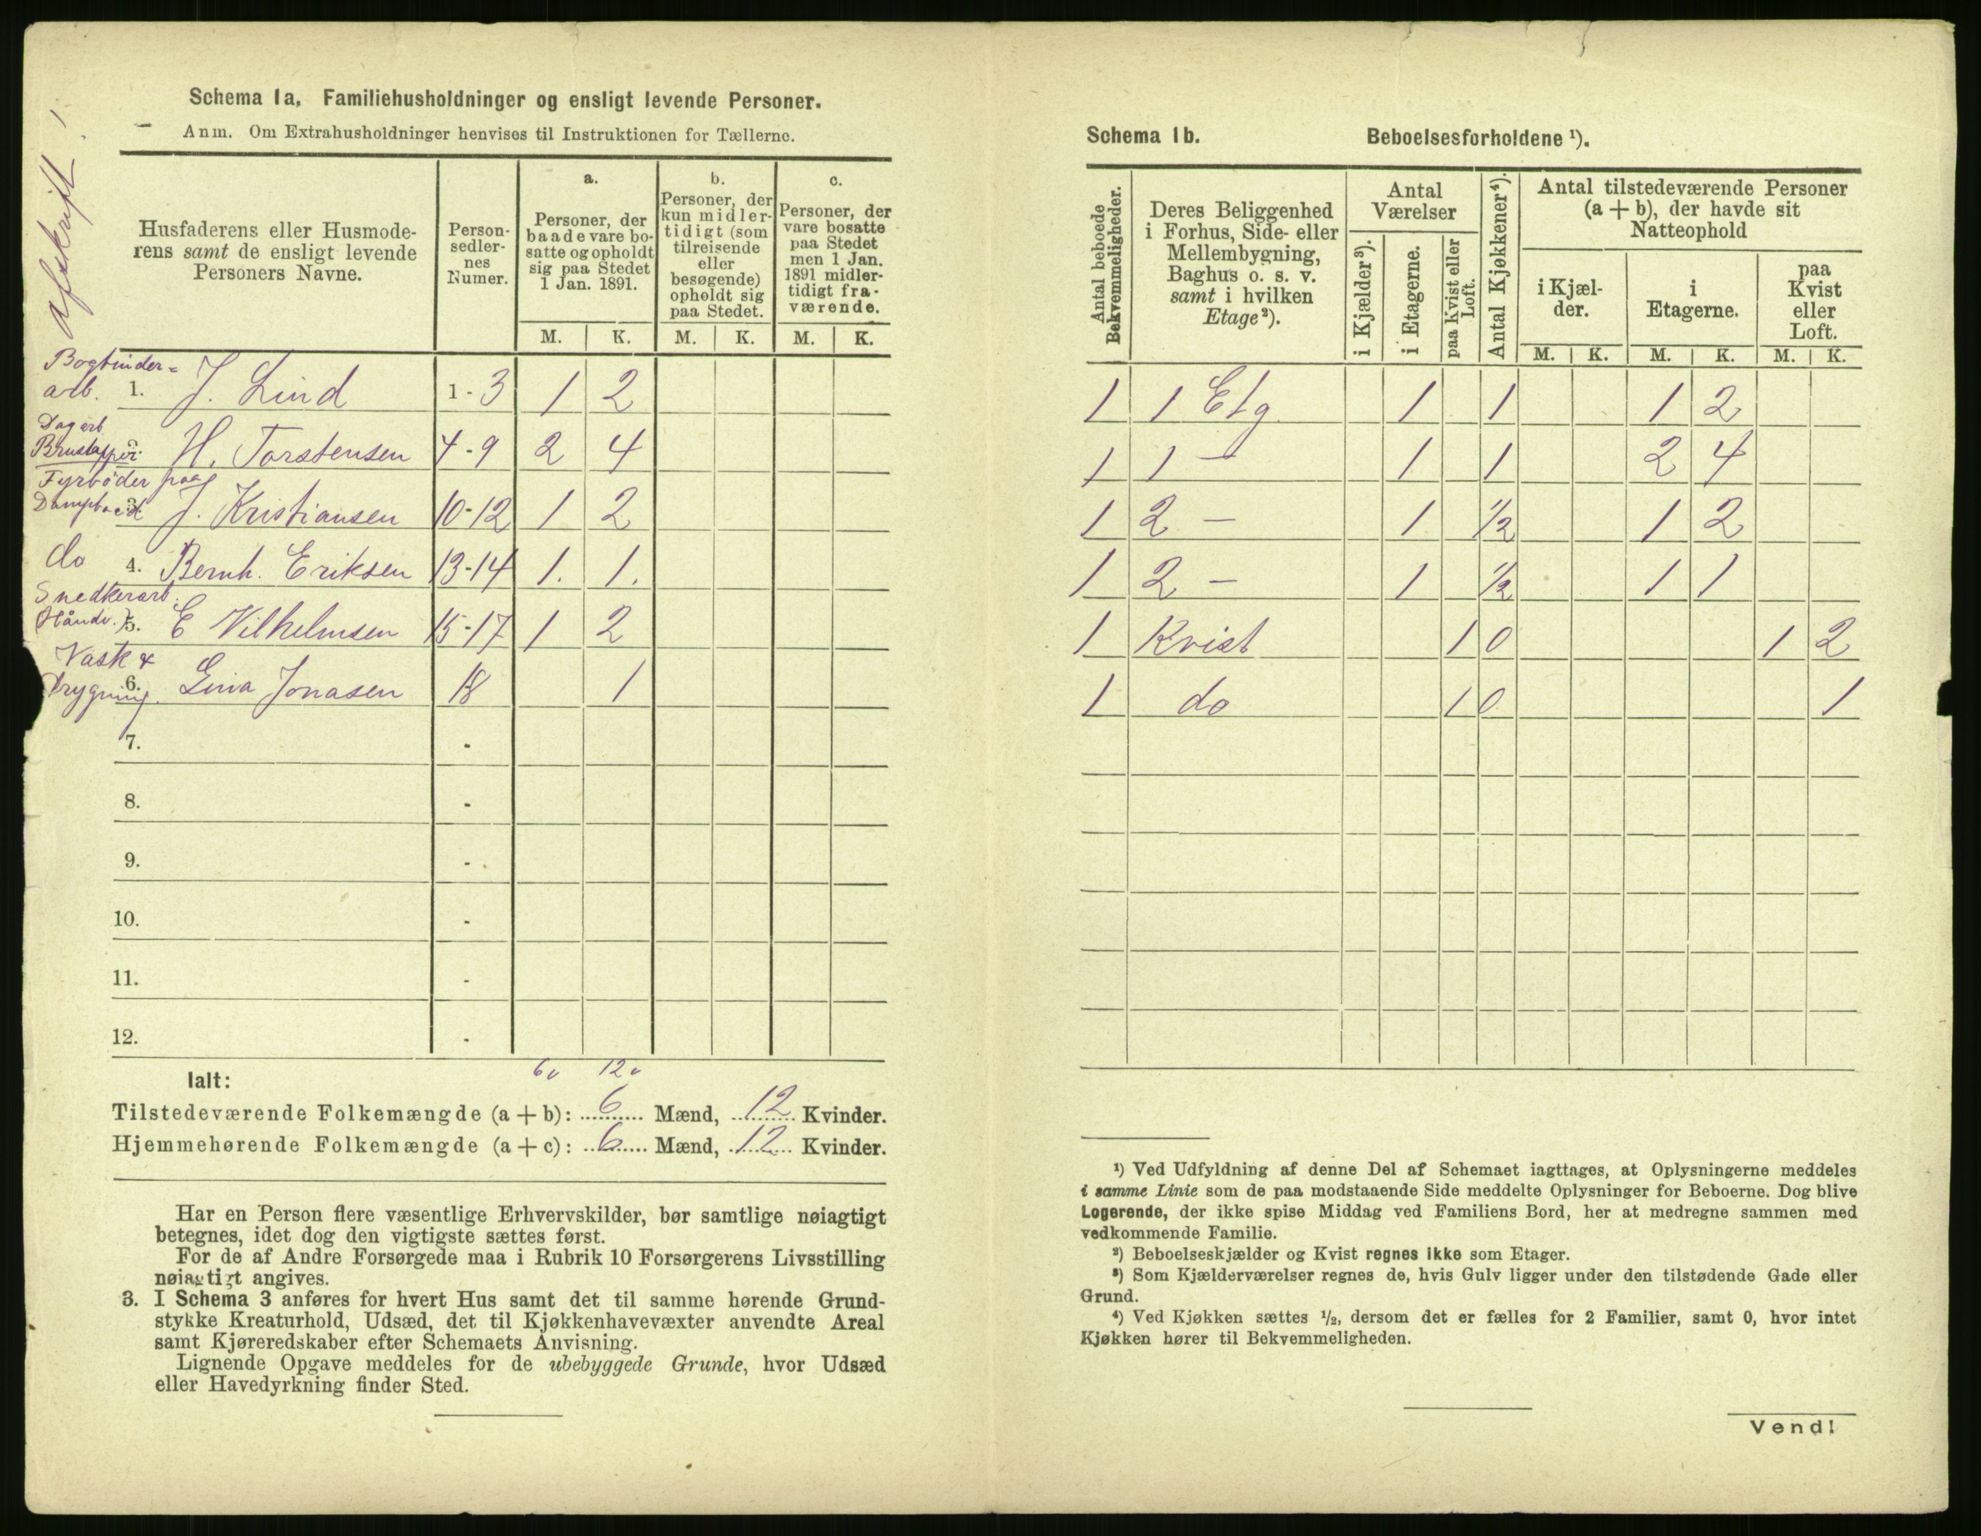 afskrift!
Schema 1a. Familiehusholdninger og ensligt levende Personer.
Anm. Om Extrahusholdninger henvises til Instruktionen for Tællerne.
Husfaderens eller Husmoderens samt de ensligt levende Personers Navne.
Person-sedler-nes Numer.
a.
Personer, der baade vare bosatte og opholdt sig paa Stedet 1 Jan. 1891.
b.
Personer, der kun midlertidigt (som tilreisende eller besøgende) opholdt sig paa Stedet.
c.
Personer, der vare bosatte paa Stedet men 1 Jan. 1891 midlertidigt fraværende.
M. K. M. K. M. K.
Bogbinder-
arb. 1. J. Lind 1 - 3 1 2
Dagarb
H. Torstensen 4 - 9 2 4
Fyrbøder paa
3. J. Kristiansen 10-12 1 2
do 4. Bernh. Eriksen 13-14 1. 1.
Snedkerarb.
5. E Vilhelmsen 15-17 1 2
Vask &
Strygning. 6. Lina Jonasen 18 1
7. -
8. -
9. -
10. -
11. -
12. -
6 12
Ialt:
Tilstedeværende Folkemængde (a + b): 6 Mænd, 12 Kvinder.
Hjemmehørende Folkemængde (a + c): 6 Mænd, 12 Kvinder.
Har en Person flere væsentlige Erhvervskilder, bør samtlige nøiagtigt
betegnes, idet dog den vigtigste sættes først.
For de af Andre Forsørgede maa i Rubrik 10 Forsørgerens Livsstilling
nøiagtigt angives.
3. I Schema 3 anføres for hvert Hus samt det til samme hørende Grund-
stykke Kreaturhold, Udsæd, det til Kjøkkenhavevæxter anvendte Areal
samt Kjøreredskaber efter Schemaets Anvisning.
Lignende Opgave meddeles for de ubebyggede Grunde, hvor Udsæd
eller Havedyrkning finder Sted.
Schema 1b. Beboelsesforholdene ¹).
Antal beboede Bekvemmeligheder.
Deres Beliggenhed i Forhus, Side- eller Mellembygning, Baghus o. s. v. samt i hvilken Etage²).
Antal Værelser
i Kjælder³).
i Etagerne.
paa Kvist eller Loft.
Antal Kjøkkener⁴).
Antal tilstedeværende Personer (a + b), der havde sit Natteophold
i Kjæl-der.
i Etagerne.
paa Kvist eller Loft.
M. K. M. K. M. K.
1 1 Etg 1 1 1 2
1 1 — 1 1 2 4
1 2 — 1 ½ 1 2
1 2 — 1 ½ 1 1
1 Kvist 1 0 1 2
1 do 1 0 1
¹) Ved Udfyldning af denne Del af Schemaet iagttages, at Oplysningerne meddeles
i samme Linie som de paa modstaaende Side meddelte Oplysninger for Beboerne. Dog blive
Logerende, der ikke spise Middag ved Familiens Bord, her at medregne sammen med
vedkommende Familie.
²) Beboelseskjælder og Kvist regnes ikke som Etager.
³) Som Kjælderværelser regnes de, hvis Gulv ligger under den tilstødende Gade eller
Grund.
⁴) Ved Kjøkken sættes ½, dersom det er fælles for 2 Familier, samt 0, hvor intet
Kjøkken hører til Bekvemmeligheden.
Vend!